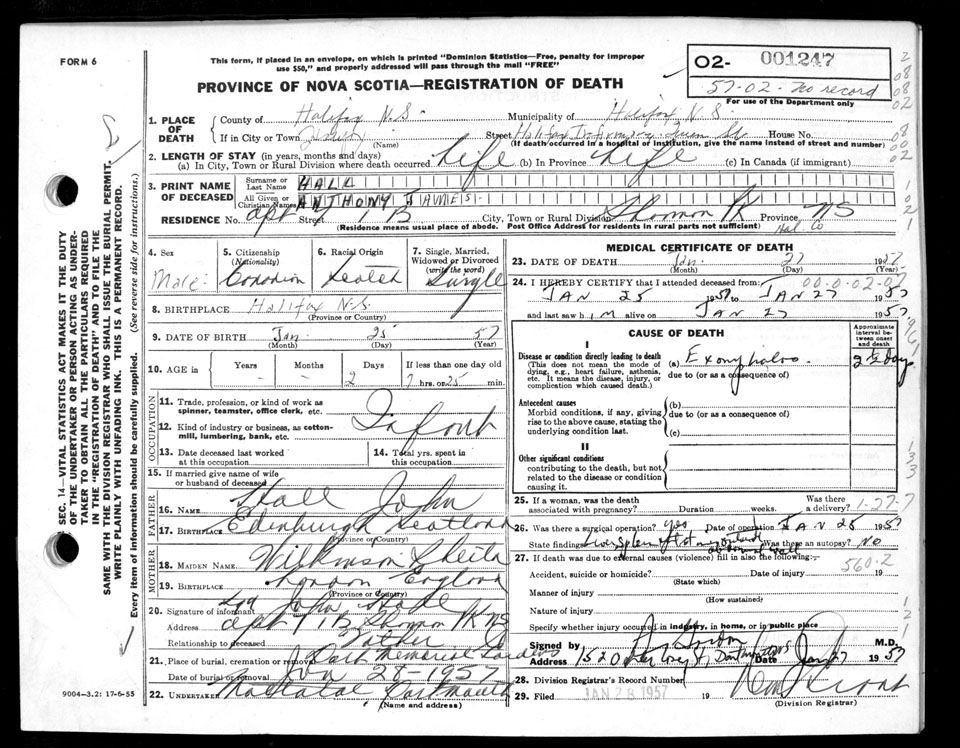 FORM 6
This form, if placed in an envelope, on which is printed "Dominion Statistics—Free, penalty for improper
use $50," and properly addressed will pass through the mail "FREE"
PROVINCE OF NOVA SCOTIA—REGISTRATION OF DEATH
02- 001247
57-02- No record
For use of the Department only
1. PLACE OF DEATH
County of Halifax N.S. Municipality of Halifax N.S.
If in City or Town (Name) Street Halifax Infirmary, Queen St House No.
(If death occurred in a hospital or institution, give the name instead of street and number)
2. LENGTH OF STAY (in years, months and days)
(a) In City, Town or Rural Division where death occurred Life (b) In Province Life (c) In Canada (if immigrant)
3. PRINT NAME OF DECEASED
Surname or Last Name HALL
All Given or Christian Names ANTHONY JAMES
RESIDENCE No. apt Street 1 B City, Town or Rural Division Shannon Pk Province NS
Hal. Co
(Residence means usual place of abode. Post Office Address for residents in rural parts not sufficient)
4. Sex
Male
5. Citizenship (Nationality)
Canadian
6. Racial Origin
7. Single, Married, Widowed or Divorced (write the word)
Single
8. BIRTHPLACE Halifax N.S.
(Province or Country)
9. DATE OF BIRTH Jan 25 57
(Month) (Day) (Year)
10. AGE in
Years Months Days If less than one day old
- - 2 7 hrs. on 25 min.
OCCUPATION
11. Trade, profession, or kind of work as spinner, teamster, office clerk, etc.
12. Kind of industry or business, as cotton-mill, lumbering, bank, etc.
Infant
13. Date deceased last worked at this occupation
14. Total yrs. spent in this occupation
15. If married give name of wife or husband of deceased
FATHER
16. NAME Hall John
17. BIRTHPLACE Edinburgh Scotland
(Province or Country)
MOTHER
18. MAIDEN NAME Wilkinson Sheila
19. BIRTHPLACE London England
(Province or Country)
20. Signature of informant John
Address apt 1 B Shannon Pk NS
Relationship to deceased Father
21. Place of burial, cremation or removal Dart Memorial Gardens
Date of burial or removal Jan 28-1957
22. UNDERTAKER Dartmouth
(Name and address)
9004-3.2: 17-6-55
MEDICAL CERTIFICATE OF DEATH
23. DATE OF DEATH Jan. 27 1957
(Month) (Day) (Year)
24. I HEREBY CERTIFY that I attended deceased from:
JAN 25 1957 to JAN 27 1957
and last saw him alive on JAN 27 1957
CAUSE OF DEATH
Approximate interval between onset and death
I
Disease or condition directly leading to death
(This does not mean the mode of dying, e.g., heart failure, asthenia, etc. It means the disease, injury, or complication which caused death.)
(a) Exomphalos 2½ days
due to (or as a consequence of)
Antecedent causes
Morbid conditions, if any, giving rise to the above cause, stating the underlying condition last.
(b)
due to (or as a consequence of)
(c)
II
Other significant conditions
contributing to the death, but not related to the disease or condition causing it.
25. If a woman, was the death associated with pregnancy? Duration weeks. Was there a delivery?
1-27-7
26. Was there a surgical operation? yes Date of operation JAN 25 1957
State findings Liver, Spleen abdominal wall Was there an autopsy? NO
27. If death was due to external causes (violence) fill in also the following:—
560-2
Accident, suicide or homicide? Date of injury 19
(State which)
Manner of injury
(How sustained)
Nature of injury
Specify whether injury occurred in industry, in home, or in public place
Signed by M.D.
Address Dartmouth NS Date Jan 27 1957
28. Division Registrar's Record Number
29. Filed JAN 28 1957 19
(Division Registrar)
SEC. 14—VITAL STATISTICS ACT MAKES IT THE DUTY
OF THE UNDERTAKER OR PERSON ACTING AS UNDER-
TAKER TO OBTAIN ALL THE PARTICULARS REQUIRED
IN THE "REGISTRATION OF DEATH" AND TO FILE THE
SAME WITH THE DIVISION REGISTRAR WHO SHALL ISSUE THE BURIAL PERMIT.
WRITE PLAINLY WITH UNFADING INK. THIS IS A PERMANENT RECORD.
Every item of information should be carefully supplied. (See reverse side for instructions.)